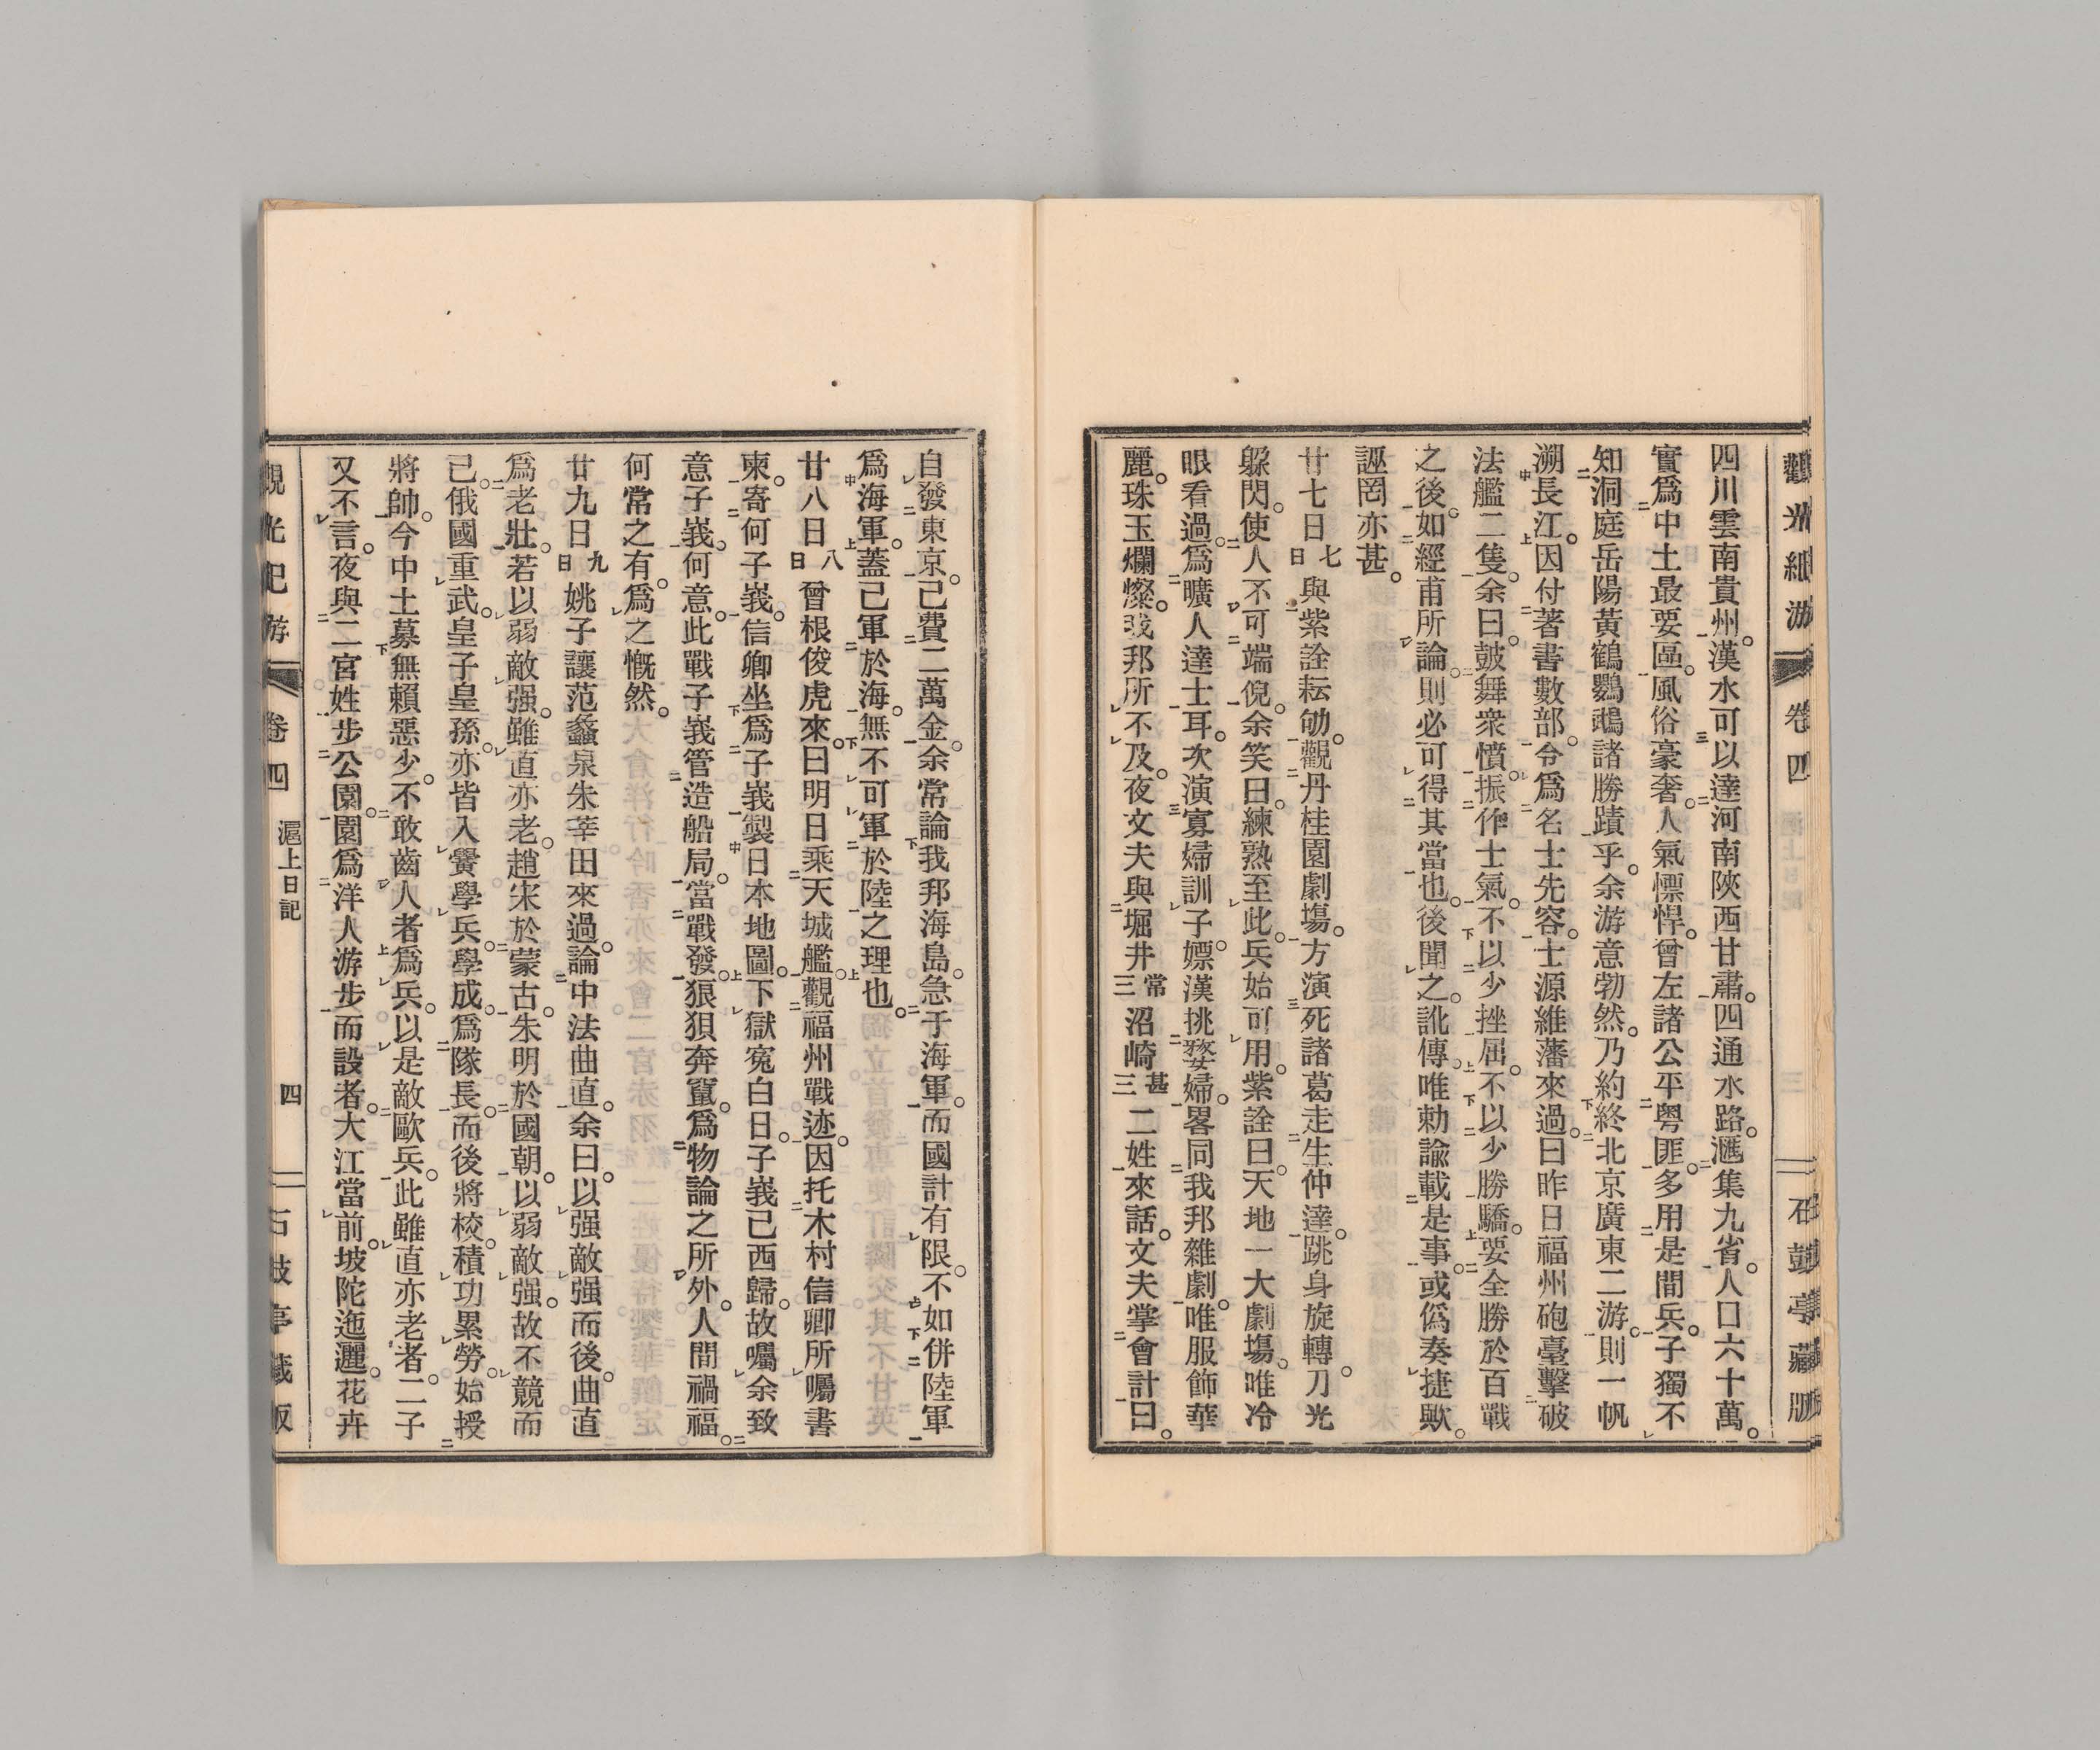 觀光紀游 卷四 石鼓亭藏版
四川雲南貴州。漢水可以達河南陝西甘肅。四通水路。滙集九省。人口六十萬。
實爲中土最要區。風俗豪奢。人氣慓悍。曾左諸公平粤匪。多用是間兵。子獨不
知洞庭岳陽黃鶴鸚鵡諸勝蹟乎。余游意勃然。乃約終北京廣東二游。則一帆
溯長江。因付著書數部。令爲名士先容。士源維藩來過。曰昨日福州砲臺擊破
法艦二隻。余曰。鼓舞衆憤。振作士氣。不以少挫屈。不以少勝驕。要全勝於百戰
之後。如經甫所論。則必可得其當也。後聞之。訛傳。唯勅諭載是事。或僞奏捷歟。
誣罔亦甚。
廿七日七日與紫詮耘劬。觀丹桂園劇塲。方演死諸葛走生仲達。跳身旋轉。刀光
躱閃。使人不可端倪。余笑曰。練熟至此。兵始可用。紫詮曰。天地一大劇塲。唯冷
眼看過。爲曠人達士耳。次演寡婦訓子。嫖漢挑婺婦。畧同我邦雜劇。唯服飾華
麗。珠玉爛燦。我邦所不及。夜文夫與堀井常三沼崎甚三二姓來話。文夫掌會計。曰。
自發東京。已費二萬金。余常論我邦海島。急于海軍。而國計有限。不如併陸軍
爲海軍。蓋已軍於海。無不可軍於陸之理也。
廿八日八日曾根俊虎來。曰明日乘天城艦。觀福州戰迹。因托木村信卿所囑書
柬。寄何子峩。信卿坐爲子峩製日本地圖。下獄寃白日。子峩已西歸。故囑余致
意子峩。何意。此戰子峩管造船局。當戰發。狼狽奔竄。爲物論之所外。人間禍福。
何常之有。爲之慨然。
廿九日九日姚子讓范蠡泉朱莘田來過。論中法曲直。余曰。以强敵强而後。曲直
爲老壯。若以弱敵强。雖直亦老。趙宋於蒙古。朱明於國朝。以弱敵强。故不競而
已。俄國重武。皇子皇孫。亦皆入黌學兵。學成。爲隊長。而後將校。積功累勞。始授
將帥。今中土募無賴惡少。不敢齒人者爲兵。以是敵歐兵。此雖直亦老者。二子
又不言。夜與二宮姓步公園。園爲洋人游步而設者。大江當前。坡陀迤邐。花卉
觀光紀游 卷四 滬上日記 四 石鼓亭藏版